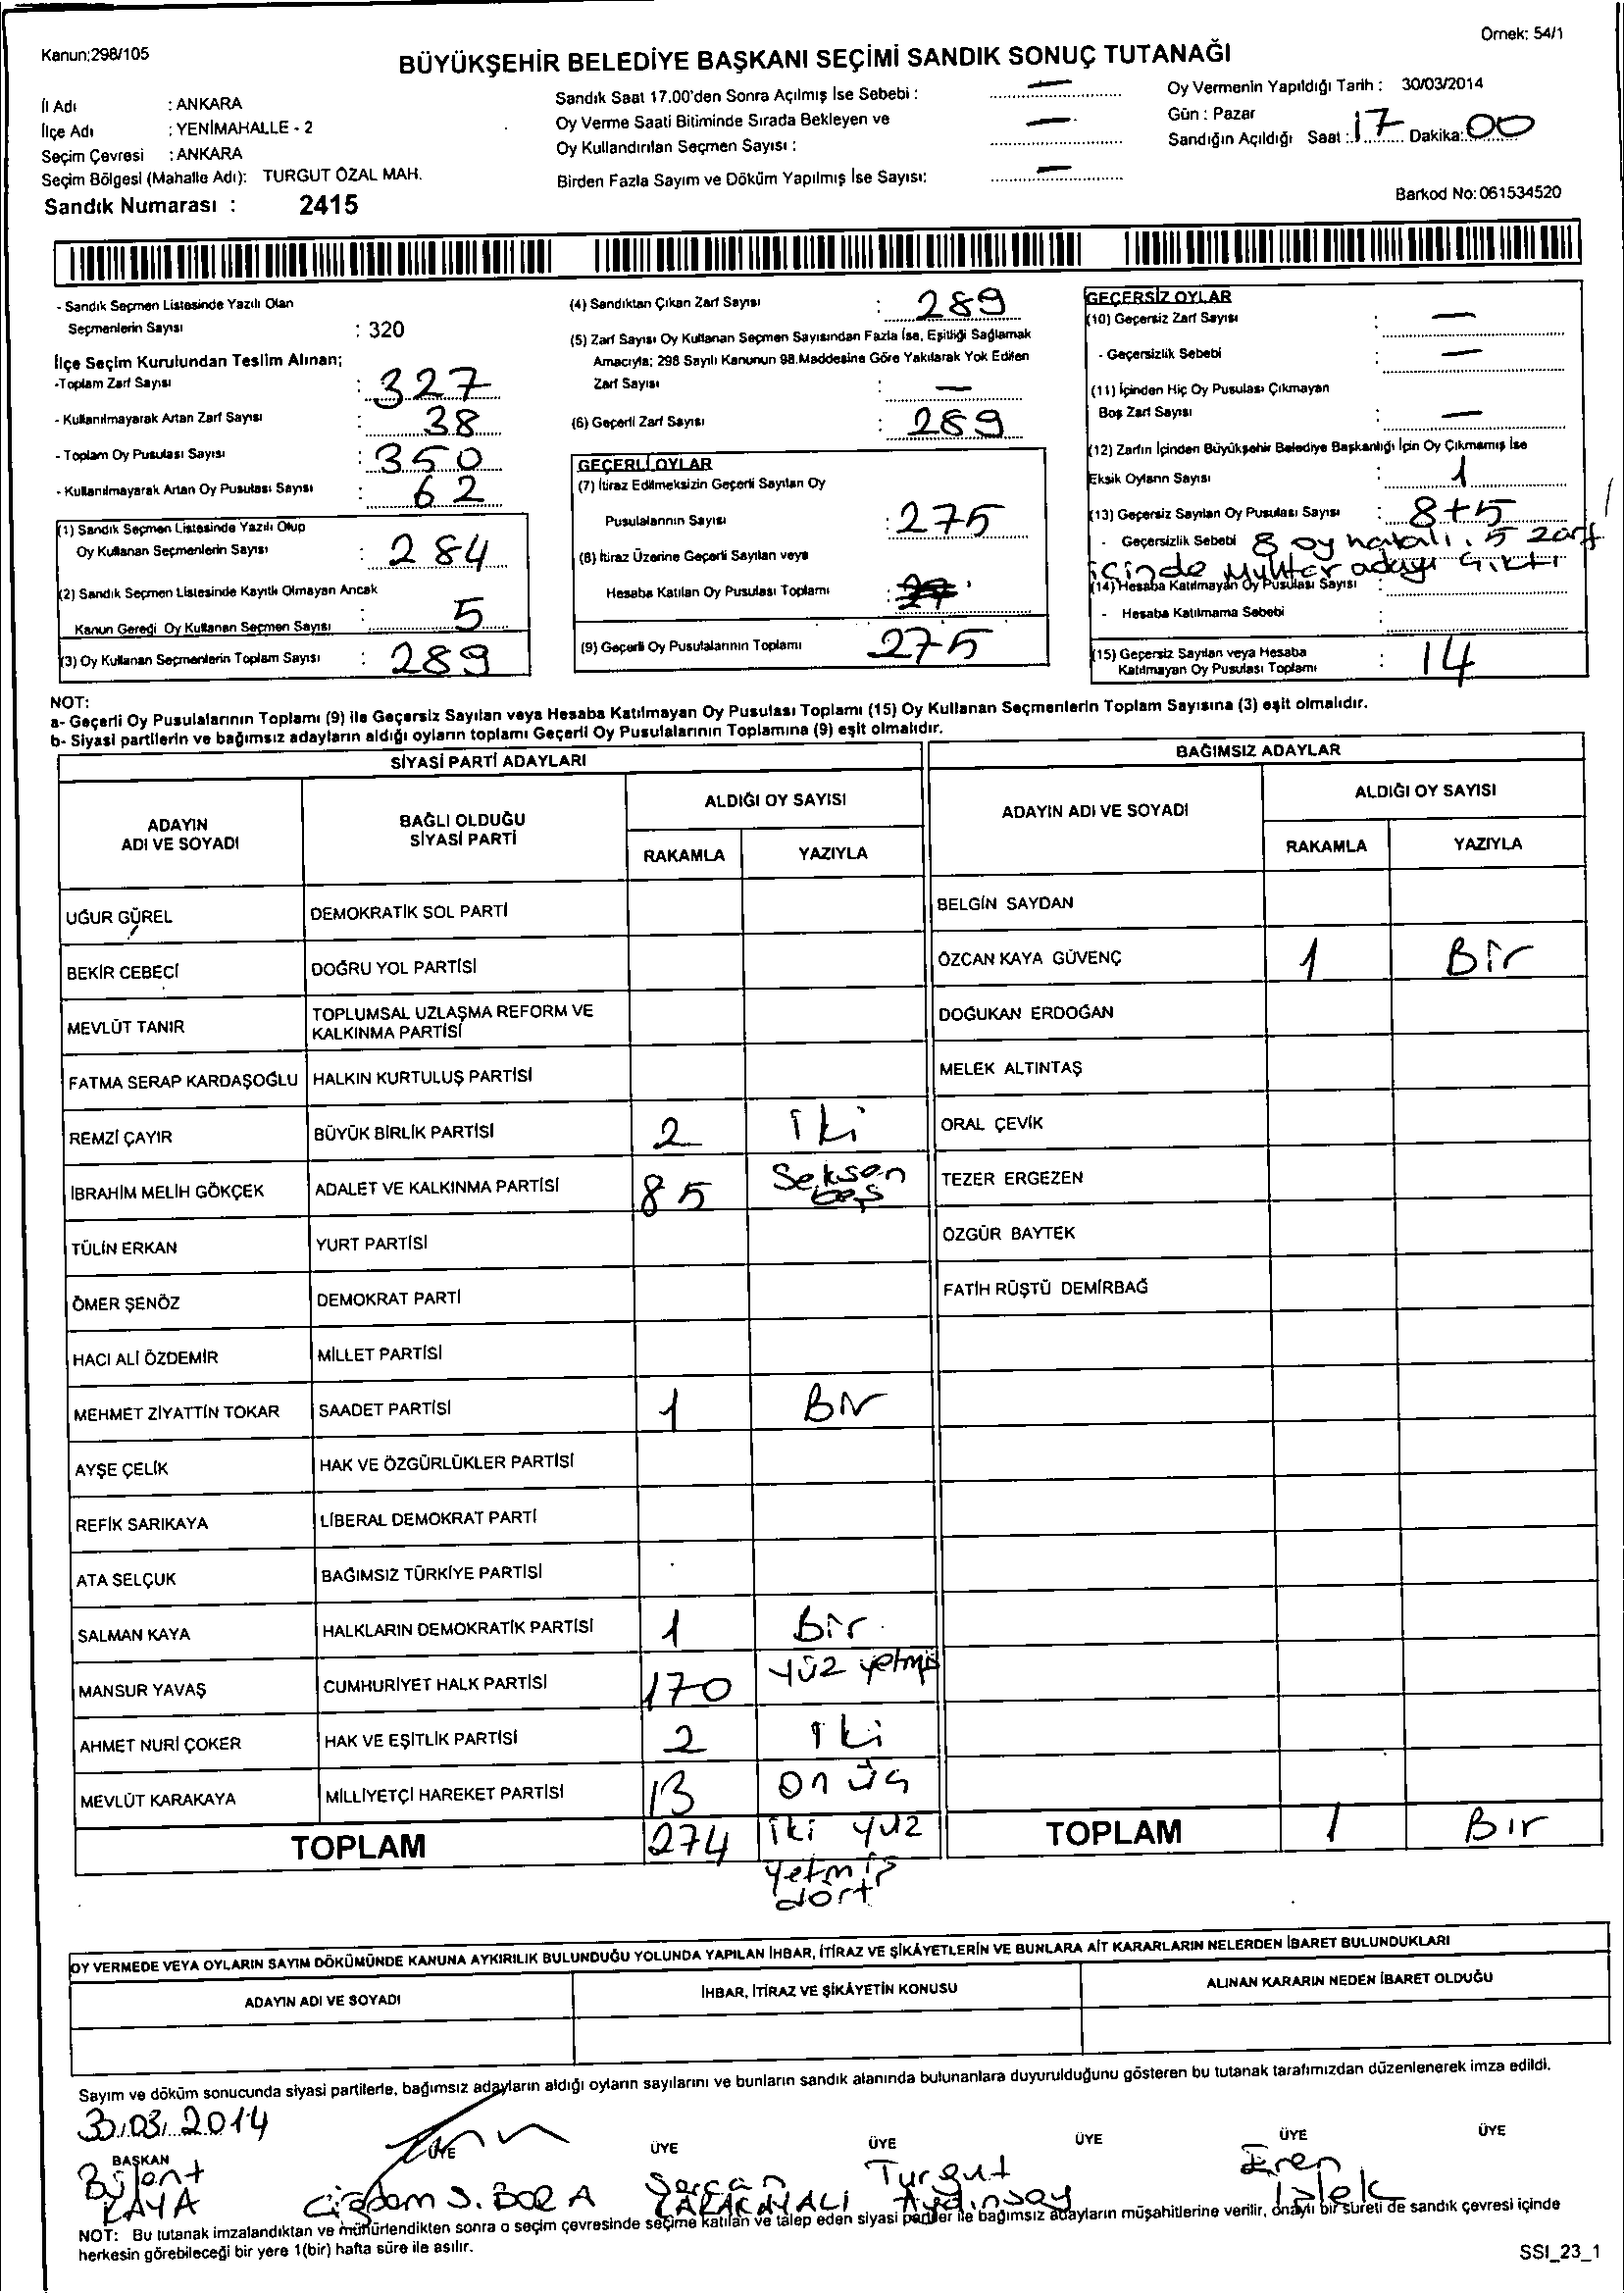 Kanun:298/105
Örnek: 54/1
BÜYÜKŞEHİR BELEDİYE BAŞKANI SEÇİMİ SANDIK SONUÇ TUTANAĞI
İl Adı : ANKARA
İlçe Adı : YENİMAHALLE - 2
Seçim Çevresi : ANKARA
Seçim Bölgesi (Mahalle Adı): TURGUT ÖZAL MAH.
Sandık Numarası : 2415
Sandık Saat 17.00'den Sonra Açılmış İse Sebebi : —
Oy Verme Saati Bitiminde Sırada Bekleyen ve
Oy Kullandırılan Seçmen Sayısı : —
Birden Fazla Sayım ve Döküm Yapılmış İse Sayısı: —
Oy Vermenin Yapıldığı Tarih : 30/03/2014
Gün : Pazar
Sandığın Açıldığı Saat : 17 Dakika: 00
Barkod No: 061534520
- Sandık Seçmen Listesinde Yazılı Olan
Seçmenlerin Sayısı : 320
İlçe Seçim Kurulundan Teslim Alınan;
-Toplam Zarf Sayısı : 327
- Kullanılmayarak Artan Zarf Sayısı : 38
- Toplam Oy Pusulası Sayısı : 350
- Kullanılmayarak Artan Oy Pusulası Sayısı : 62
(1) Sandık Seçmen Listesinde Yazılı Olup
Oy Kullanan Seçmenlerin Sayısı : 284
(2) Sandık Seçmen Listesinde Kayıtlı Olmayan Ancak
Kanun Geredi Oy Kullanan Seçmen Sayısı : 5
(3) Oy Kullanan Seçmenlerin Toplam Sayısı : 289
(4) Sandıktan Çıkan Zarf Sayısı : 289
(5) Zarf Sayısı Oy Kullanan Seçmen Sayısından Fazla İse, Eşitliği Sağlamak
Amacıyla; 298 Sayılı Kanunun 98.Maddesine Göre Yakılarak Yok Edilen
Zarf Sayısı : —
(6) Geçerli Zarf Sayısı : 289
GEÇERLİ OYLAR
(7) İtiraz Edilmeksizin Geçerli Sayılan Oy
Pusulalarının Sayısı : 275
(8) İtiraz Üzerine Geçerli Sayılan veya
Hesaba Katılan Oy Pusulası Toplamı :
(9) Geçerli Oy Pusulalarının Toplamı 275
GEÇERSİZ OYLAR
(10) Geçersiz Zarf Sayısı : —
- Geçersizlik Sebebi : —
(11) İçinden Hiç Oy Pusulası Çıkmayan
Boş Zarf Sayısı : —
(12) Zarfın İçinden Büyükşehir Belediye Başkanlığı İçin Oy Çıkmamış İse
Eksik Oyların Sayısı : 1
(13) Geçersiz Sayılan Oy Pusulası Sayısı : 8+5
- Geçersizlik Sebebi 8 oy hatalı, 5 zarf
içinde muhtar adayı çıktı
(14) Hesaba Katılmayan Oy Pusulası Sayısı :
- Hesaba Katılmama Sebebi :
(15) Geçersiz Sayılan veya Hesaba
Katılmayan Oy Pusulası Toplamı : 14
NOT:
a- Geçerli Oy Pusulalarının Toplamı (9) ile Geçersiz Sayılan veya Hesaba Katılmayan Oy Pusulası Toplamı (15) Oy Kullanan Seçmenlerin Toplam Sayısına (3) eşit olmalıdır.
b- Siyasi partilerin ve bağımsız adayların aldığı oyların toplamı Geçerli Oy Pusulalarının Toplamına (9) eşit olmalıdır.
SİYASİ PARTİ ADAYLARI
ADAYIN ADI VE SOYADI
BAĞLI OLDUĞU SİYASİ PARTİ
ALDIĞI OY SAYISI
RAKAMLA YAZIYLA
UĞUR GÜREL DEMOKRATİK SOL PARTİ
BEKİR CEBECİ DOĞRU YOL PARTİSİ
MEVLÜT TANIR TOPLUMSAL UZLAŞMA REFORM VE
KALKINMA PARTİSİ
FATMA SERAP KARDAŞOĞLU HALKIN KURTULUŞ PARTİSİ
REMZİ ÇAYIR BÜYÜK BİRLİK PARTİSİ 2 iki
İBRAHİM MELİH GÖKÇEK ADALET VE KALKINMA PARTİSİ 85 Seksen beş
TÜLİN ERKAN YURT PARTİSİ
ÖMER ŞENÖZ DEMOKRAT PARTİ
HACI ALİ ÖZDEMİR MİLLET PARTİSİ
MEHMET ZİYATTİN TOKAR SAADET PARTİSİ 1 Bir
AYŞE ÇELİK HAK VE ÖZGÜRLÜKLER PARTİSİ
REFİK SARIKAYA LİBERAL DEMOKRAT PARTİ
ATA SELÇUK BAĞIMSIZ TÜRKİYE PARTİSİ
SALMAN KAYA HALKLARIN DEMOKRATİK PARTİSİ 1 Bir
MANSUR YAVAŞ CUMHURİYET HALK PARTİSİ 170 yüz yetmiş
AHMET NURİ ÇOKER HAK VE EŞİTLİK PARTİSİ 2 iki
MEVLÜT KARAKAYA MİLLİYETÇİ HAREKET PARTİSİ 13 on üç
TOPLAM 274 iki yüz
yetmiş
dört
BAĞIMSIZ ADAYLAR
ADAYIN ADI VE SOYADI
ALDIĞI OY SAYISI
RAKAMLA YAZIYLA
BELGİN SAYDAN
ÖZCAN KAYA GÜVENÇ 1 Bir
DOĞUKAN ERDOĞAN
MELEK ALTINTAŞ
ORAL ÇEVİK
TEZER ERGEZEN
ÖZGÜR BAYTEK
FATİH RÜŞTÜ DEMİRBAĞ
TOPLAM 1 Bır
OY VERMEDE VEYA OYLARIN SAYIM DÖKÜMÜNDE KANUNA AYKIRILIK BULUNDUĞU YOLUNDA YAPILAN İHBAR, İTİRAZ VE ŞİKÂYETLERİN VE BUNLARA AİT KARARLARIN NELERDEN İBARET BULUNDUKLARI
ADAYIN ADI VE SOYADI İHBAR, İTİRAZ VE ŞİKÂYETİN KONUSU ALINAN KARARIN NEDEN İBARET OLDUĞU
Sayım ve döküm sonucunda siyasi partilerle, bağımsız adayların aldığı oyların sayılarını ve bunların sandık alanında bulunanlara duyurulduğunu gösteren bu tutanak tarafımızdan düzenlenerek imza edildi.
30.03.2014
BAŞKAN ÜYE ÜYE ÜYE ÜYE ÜYE ÜYE
Bülent KAYA
Çiğdem S. BORA
Sercan
Turgut Aydınsoy
Eren İşlek
NOT: Bu tutanak imzalandıktan ve mühürlendikten sonra o seçim çevresinde seçime katılan ve talep eden siyasi partiler ile bağımsız adayların müşahitlerine verilir, onaylı bir sureti de sandık çevresi içinde
herkesin görebileceği bir yere 1(bir) hafta süre ile asılır.
SSI_23_1